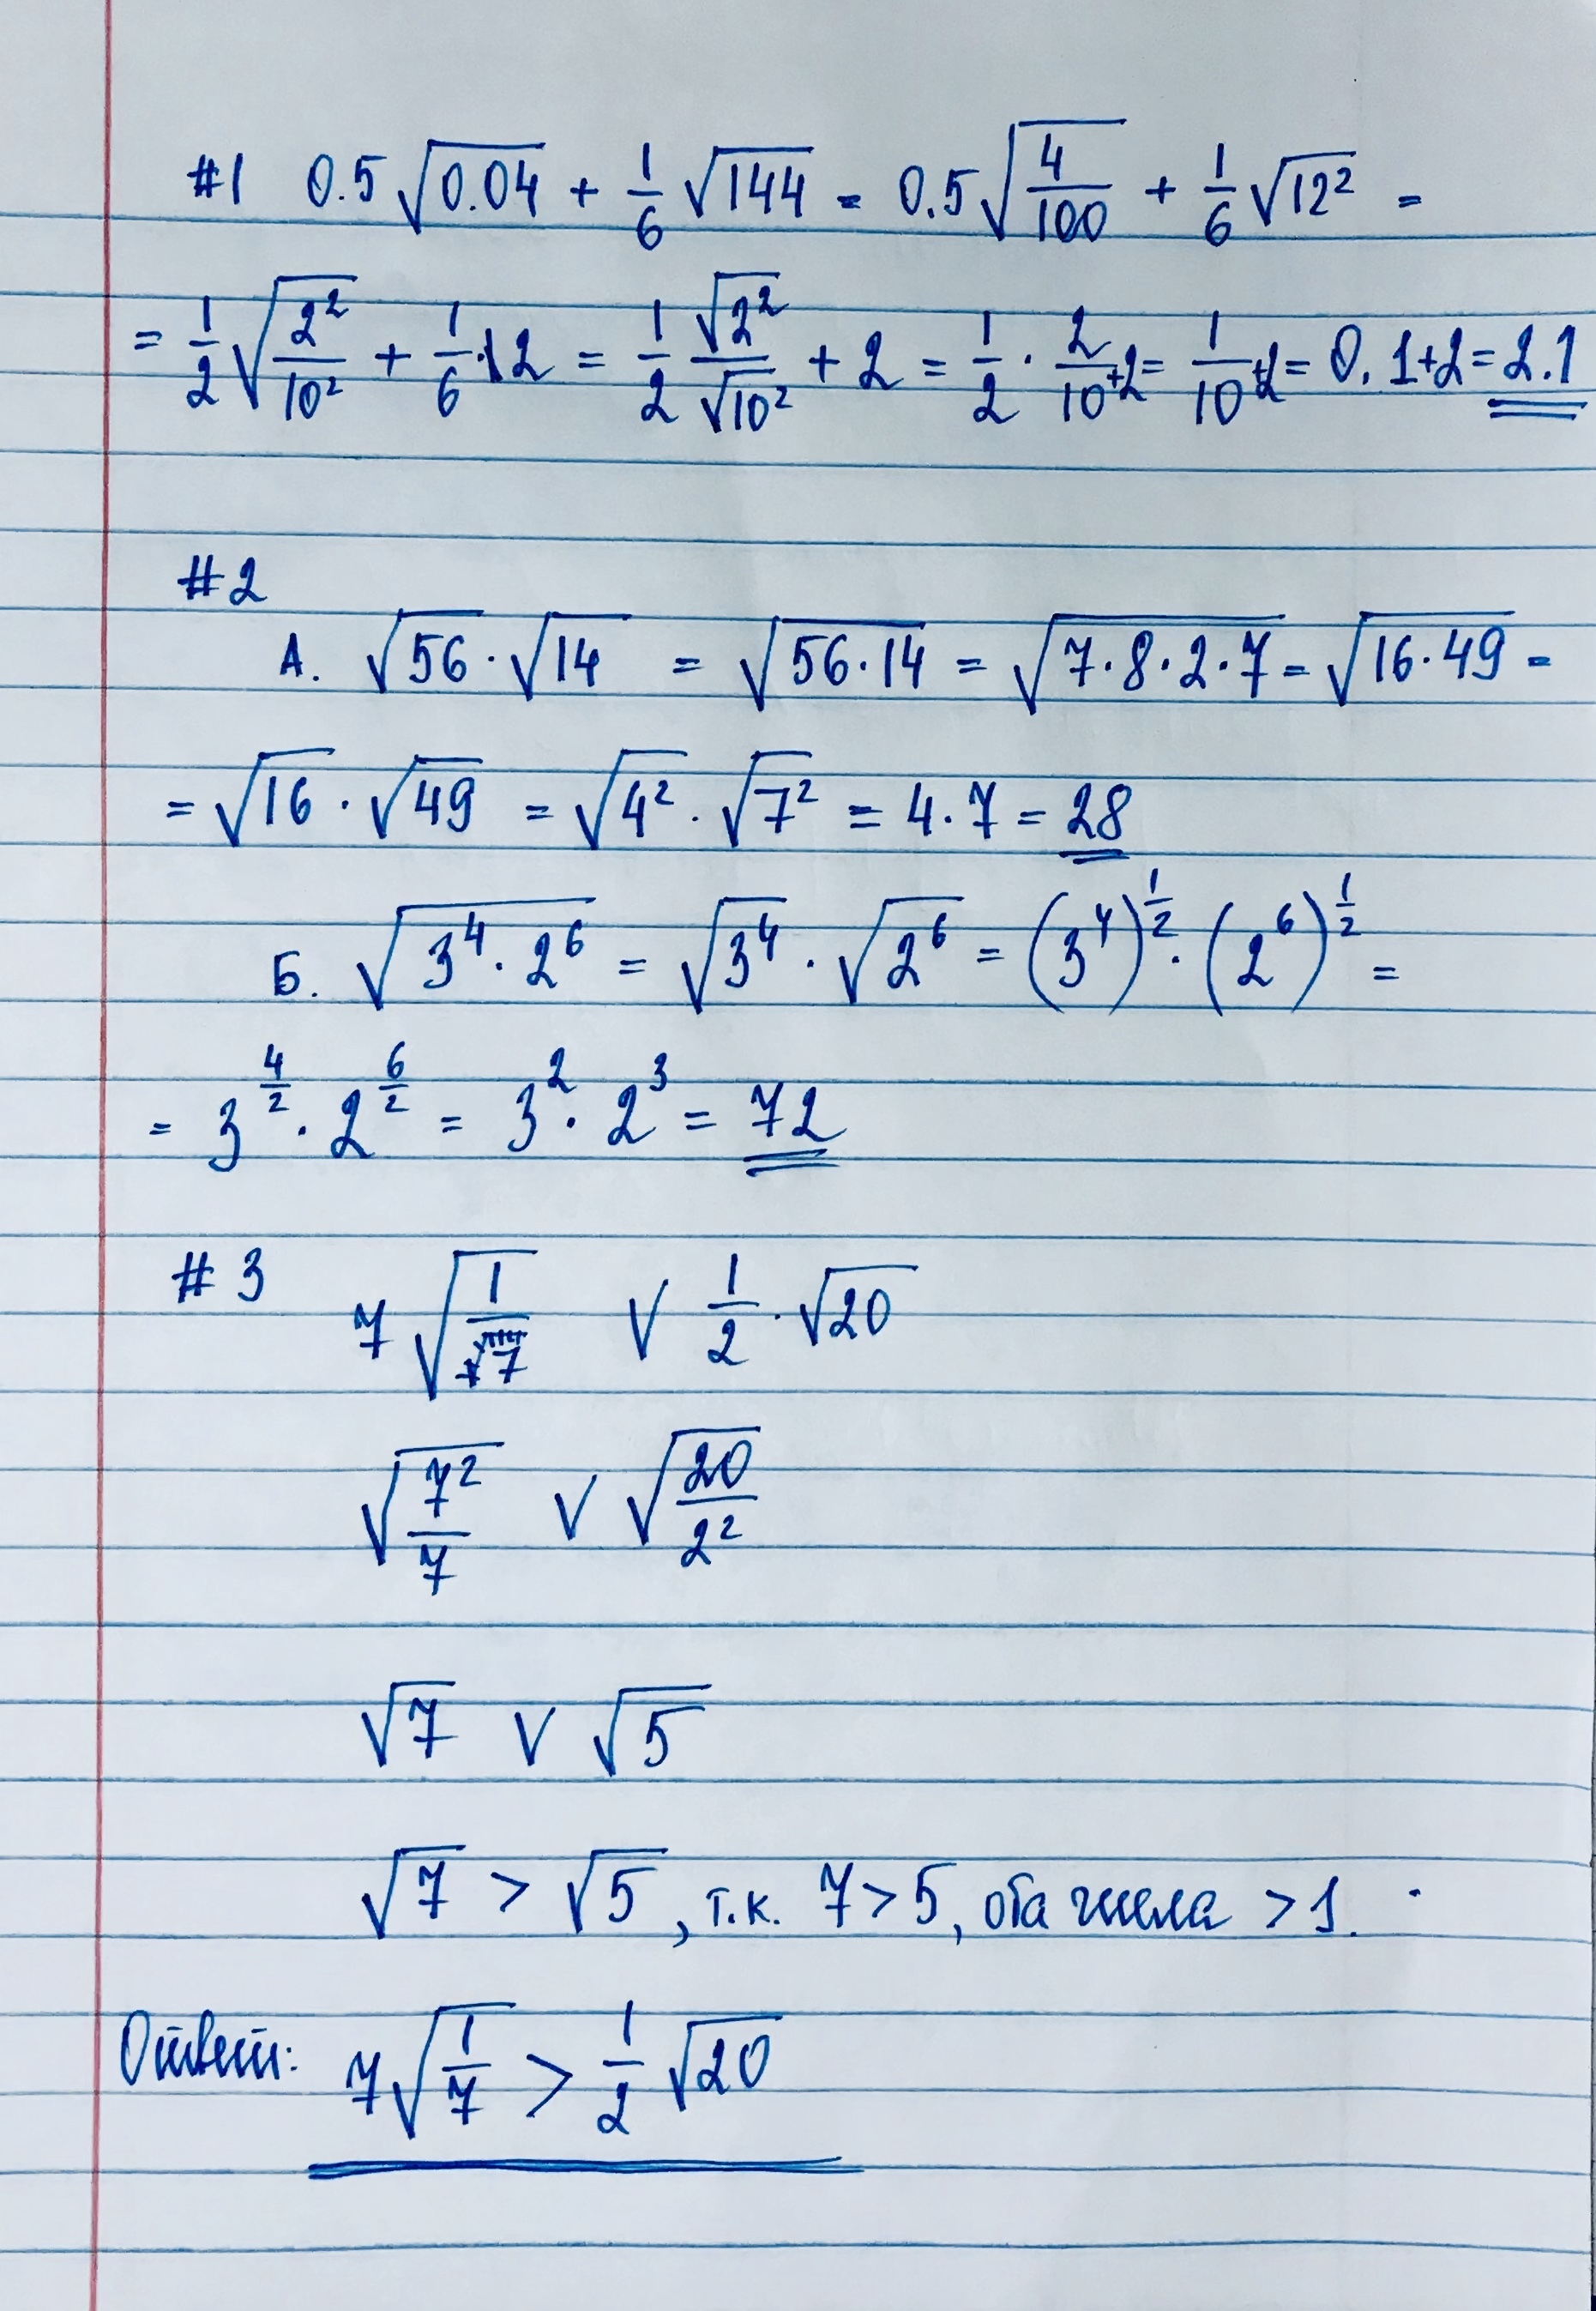 #1 0.5√0.04 + 1/6 √144 = 0.5√(4/100) + 1/6 √12² =
= 1/2 √(2²/10²) + 1/6 · 12 = 1/2 √2²/√10² + 2 = 1/2 · 2/10 + 2 = 1/10 + 2 = 0.1+2 = 2.1
#2
А. √56 · √14 = √(56·14) = √(7·8·2·7) = √(16·49) =
= √16 · √49 = √4² · √7² = 4·7 = 28
Б. √(3⁴·2⁶) = √3⁴ · √2⁶ = (3⁴)^(1/2) · (2⁶)^(1/2) =
= 3^(4/2) · 2^(6/2) = 3² · 2³ = 72
#3 7√(1/7) V 1/2 · √20
√(7²/7) V √(20/2²)
√7 V √5
√7 > √5, т.к. 7>5, оба числа >1.
Ответ: 7√(1/7) > 1/2 √20